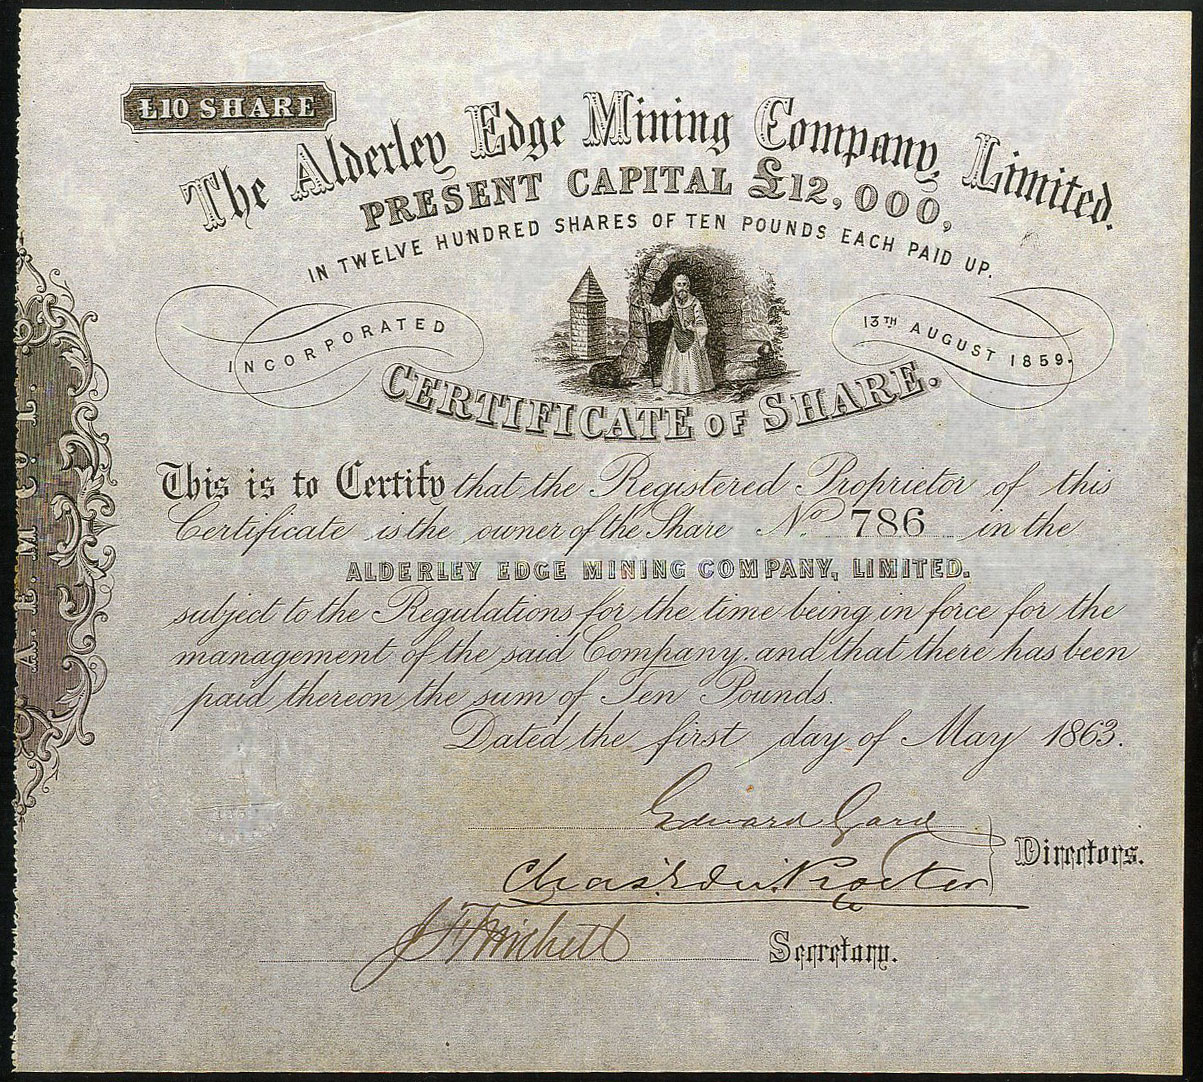 £10 SHARE
The Alderley Edge Mining Company, Limited.
PRESENT CAPITAL £12,000,
IN TWELVE HUNDRED SHARES OF TEN POUNDS EACH PAID UP.
INCORPORATED 13TH AUGUST 1859.
CERTIFICATE OF SHARE.
This is to Certify that the Registered Proprietor of this
Certificate is the owner of the Share No. 786 in the
ALDERLEY EDGE MINING COMPANY, LIMITED.
subject to the Regulations for the time being in force for the
management of the said Company, and that there has been
paid thereon the sum of Ten Pounds.
Dated the first day of May 1863.
Edward Gard
Directors.
Secretary.
A. E. M. C. L.